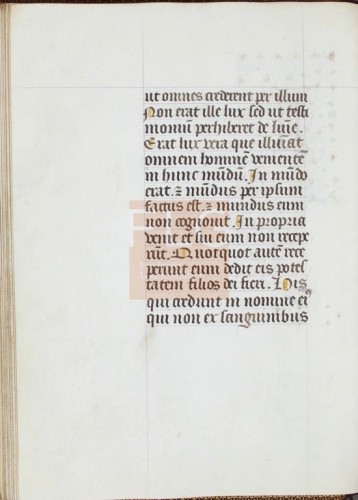 ut omnes crederent per illum
Non erat ille lux sed ut testi
monium perhiberet de lumĩe.
Erat lux vera que illuĩat
omnem hominẽ venientẽ
in hunc mũdũ. In mũdo
erat. ⁊ mũdus per ipsum
factus est. ⁊ mundus eum
non cognovit. In propria
venit et sui eum non recepe
rũt. Quotquot autẽ rece
perunt eum dedit eis potes
tatem filios dei fieri. His
qui credunt in nomine eiꝰ
qui non ex sanguinibus